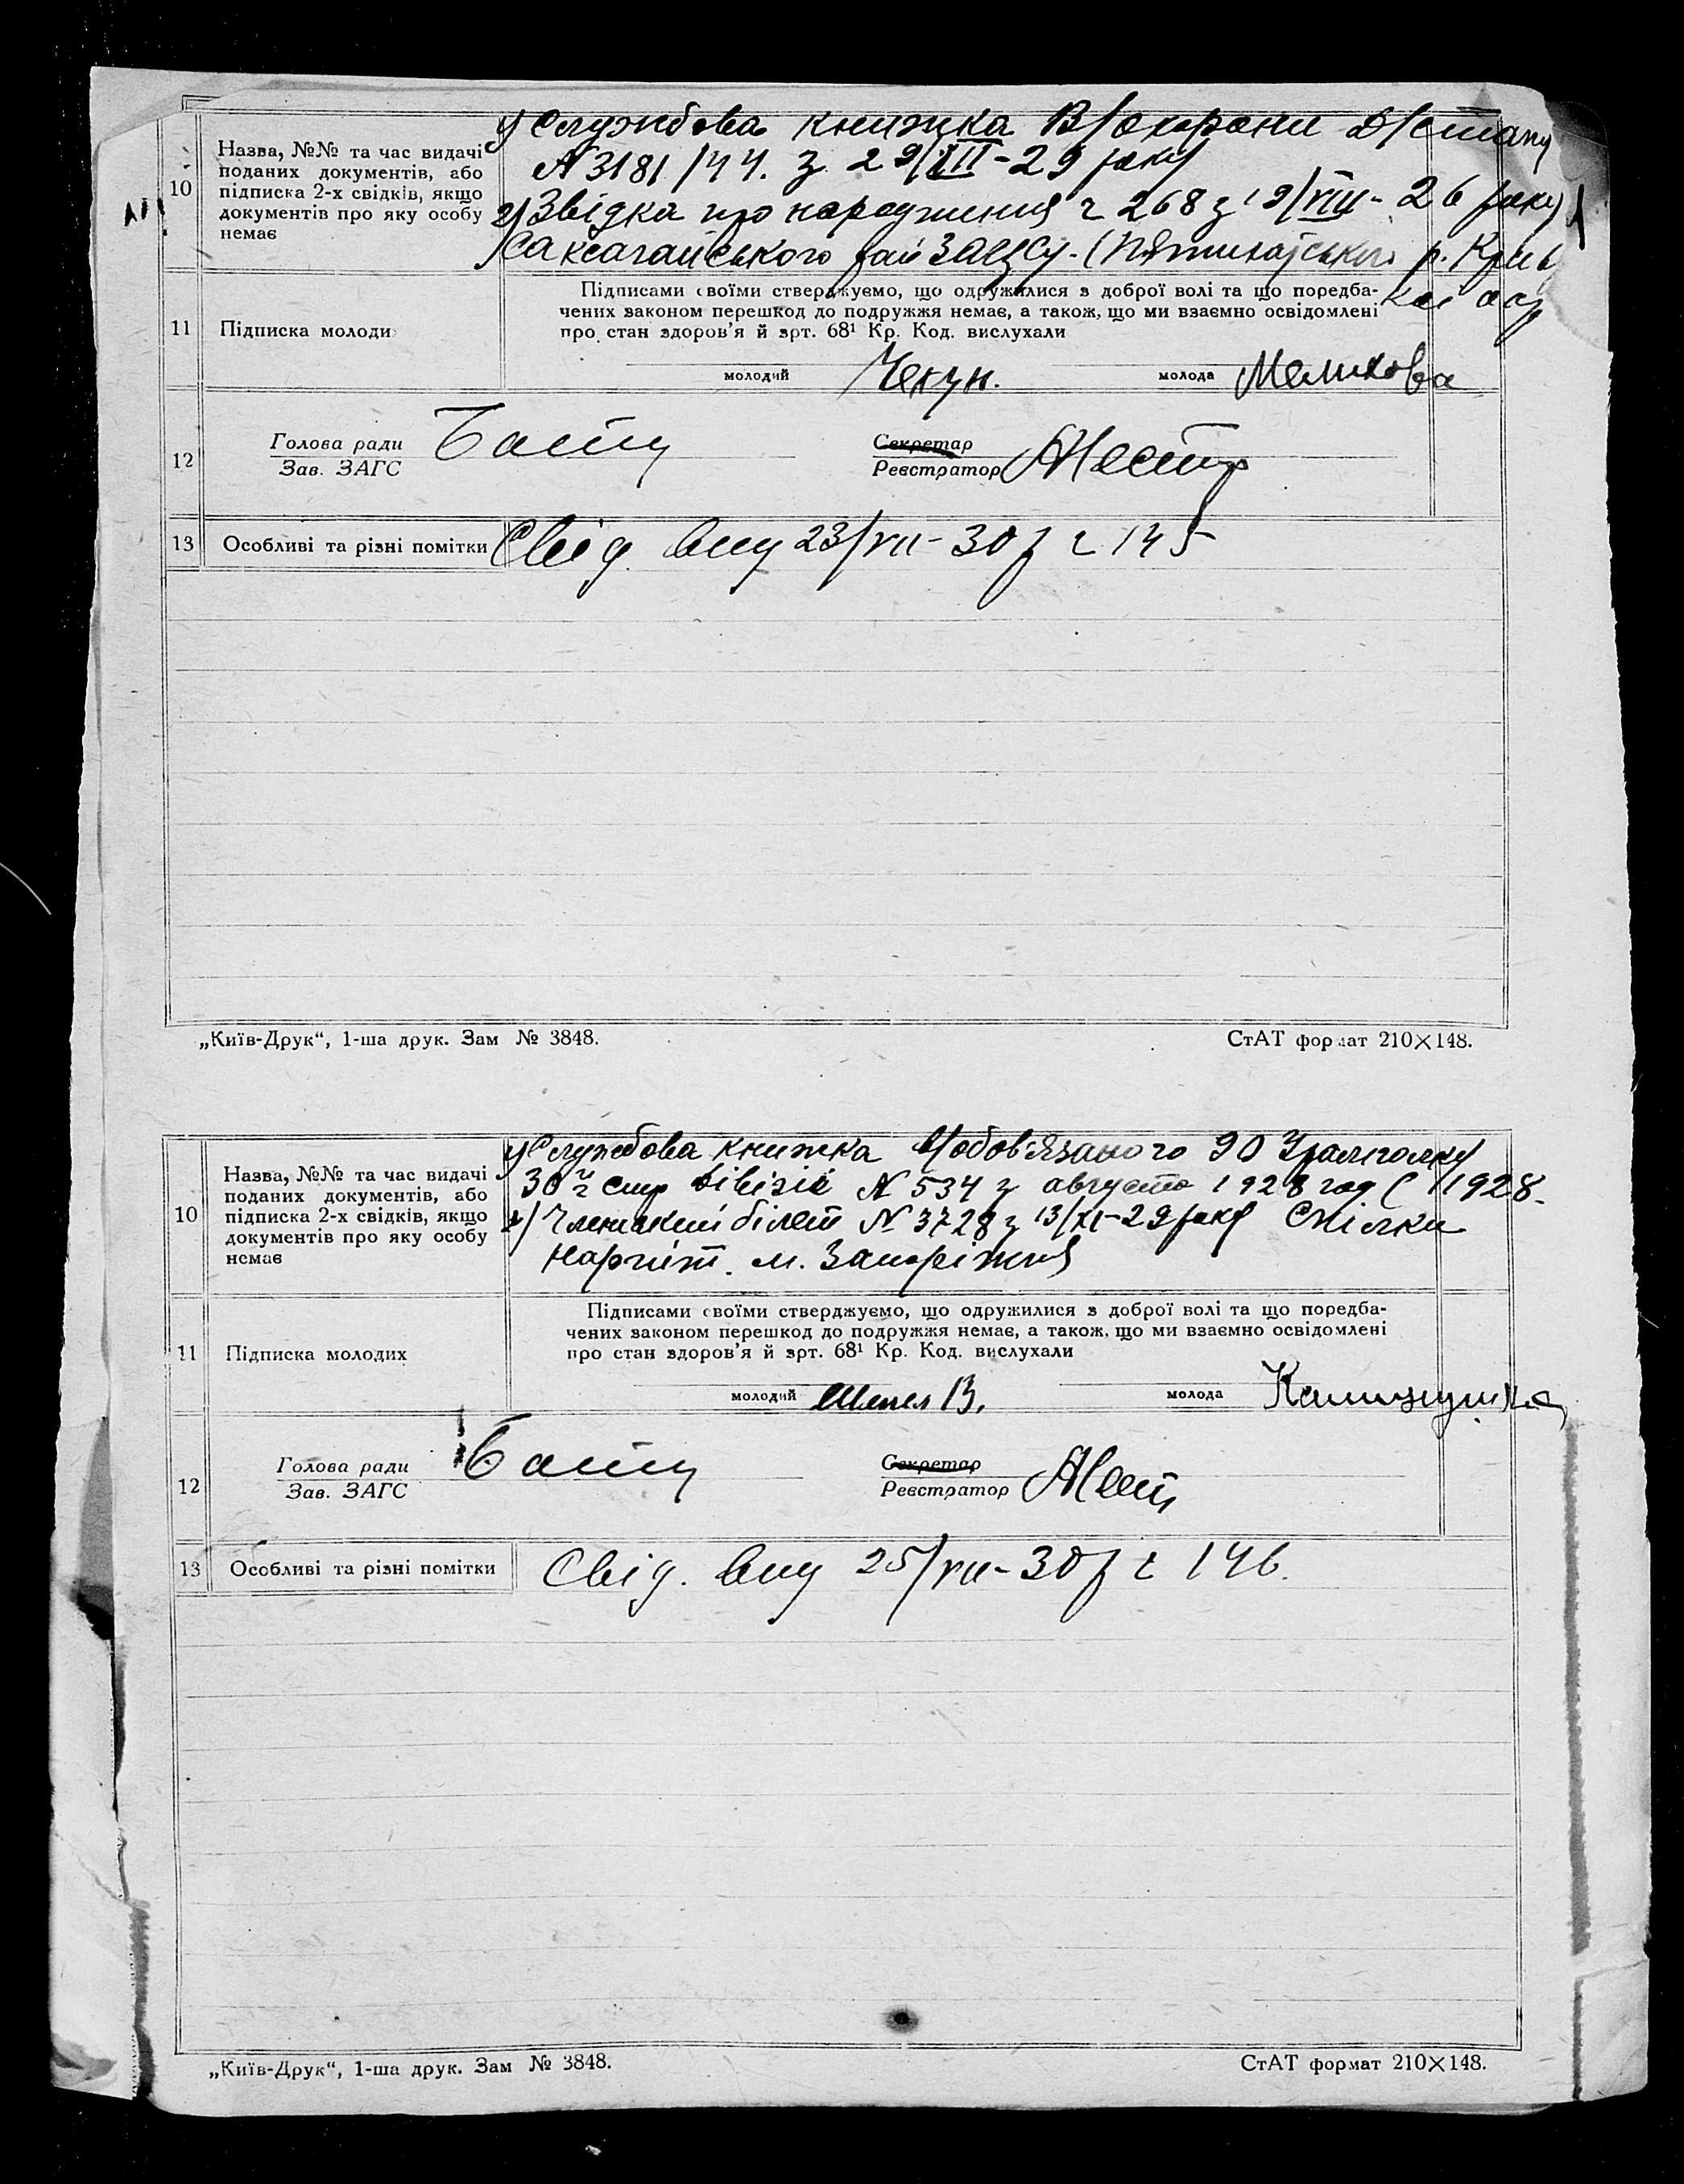 10
Назва, №№ та час видачі
поданих документів, або
підписка 2-х свідків, якщо
документів про яку особу
немає
1) Службова книжка В/охорони
N 3181/44. з 29/VII-29 року
2) Звідка про народження ч 268 з 19/VIII-26 року
Саксаганського рай ЗАГСу. (Пятихатського р. Крив
11
Підписка молоди
Підписами своїми стверджуємо, що одружилися з доброї волі та що поредба-
чених законом перешкод до подружжя немає, а також, що ми взаємно освідомлені
про стан здоров'я й зрт. 68¹ Кр. Код. вислухали
молодий Чекун. молода Меликова
12
Голова ради
Зав. ЗАГС
Секретар
Реєстратор
13
Особливі та різні помітки Свід. вид 23/VII-30 р ч 145
„Київ-Друк“, 1-ша друк. Зам № 3848. СтАТ формат 210×148.
10
Назва, №№ та час видачі
поданих документів, або
підписка 2-х свідків, якщо
документів про яку особу
немає
1) Службова книжка В/обов'язаного 90
30ї стр дівізіі N 534 з августа 1928 год 1928.
2) Членський білет N 3728 з 13/XI-29 року Спілки
Нархіт. м. Запоріжжя
11
Підписка молодих
Підписами своїми стверджуємо, що одружилися з доброї волі та що поредба-
чених законом перешкод до подружжя немає, а також, що ми взаємно освідомлені
про стан здоров'я й зрт. 68¹ Кр. Код. вислухали
молодий Шепел В. молода
12
Голова ради
Зав. ЗАГС
Секретар
Реєстратор
13
Особливі та різні помітки Свід. вид 25/VII-30 р ч 146.
„Київ-Друк“, 1-ша друк. Зам № 3848. СтАТ формат 210×148.